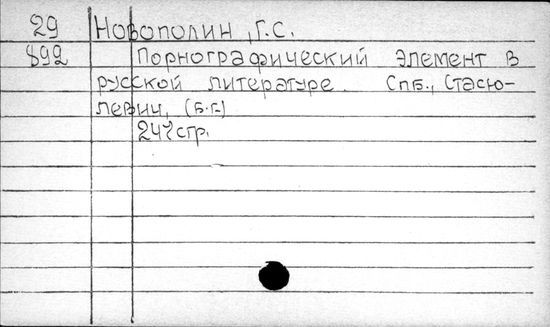 29 Новополин, Г.С.
892 Порнографический элемент в
русской литературе. Спб., Стасю-
левич, (б.г.)
247 стр.